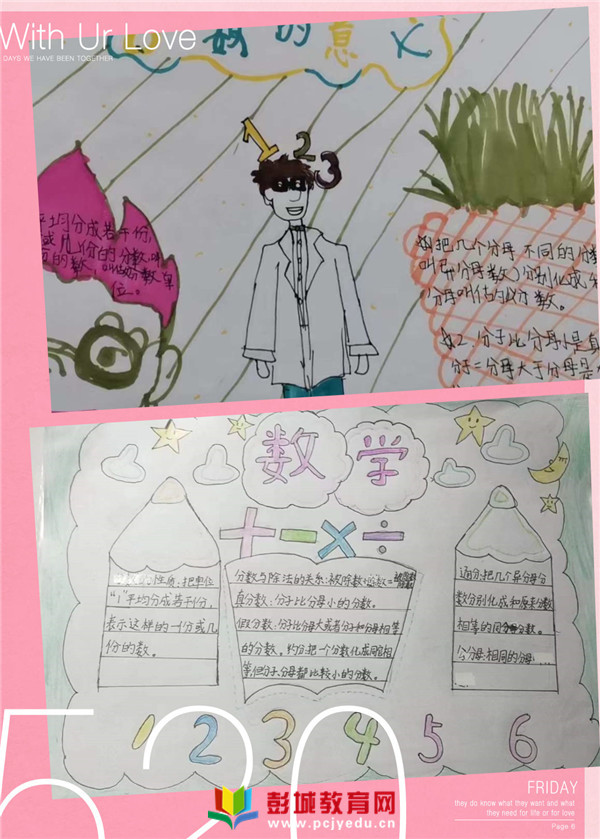 With Ur Love
DAYS WE HAVE BEEN TOGETHER
数的意义
1 2 3
平均分成若干份,
几份的分数,
的数,
位。
把几个分母不同的分数
分别化成
分母叫
数。
2. 分子比分母小是真
分子=分母大于分母是
数学
+ - × ÷
性质:把单位
“1”平均分成若干份,
表示这样的一份或几
份的数。
分数与除法的关系:被除数÷除数=
真分数:分子比分母小的分数。
假分数:分子比分母大或者分子和分母相等
的分数。约分把一个分数化成同它相
等但分子、分母都比较小的分数。
通分:把几个异分母分
数分别化成和原来分数
相等的同分母分数。
公分母:相同的分母……
1 2 3 4 5 6
520
彭城教育网
www.pcjyedu.cn
FRIDAY
they do know what they want and what
they need for life or for love
Page 6